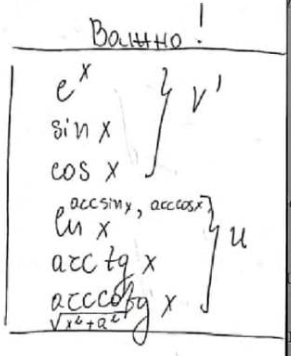 Важно!
e^x
sin x
cos x
} v'
arcsin x, arccos x
ln x
arc tg x
arcctg x
√x²+a²
} u